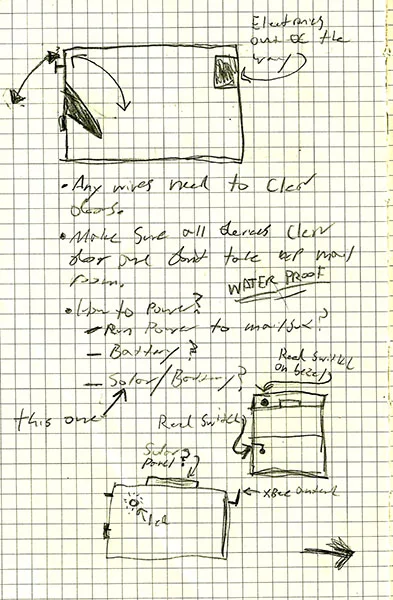 Electronics
out of the
way
• Any wires need to clear
doors.
• Make sure all devices clear
door and don't take up mail
room.
WATER PROOF
• How to Power?
— Run Power to mailbox?
— Battery?
— Solar/Battery?
this one
Reed Switch
on bezel
Reed Switch
Solar
Panel?
Led
XBee antenna